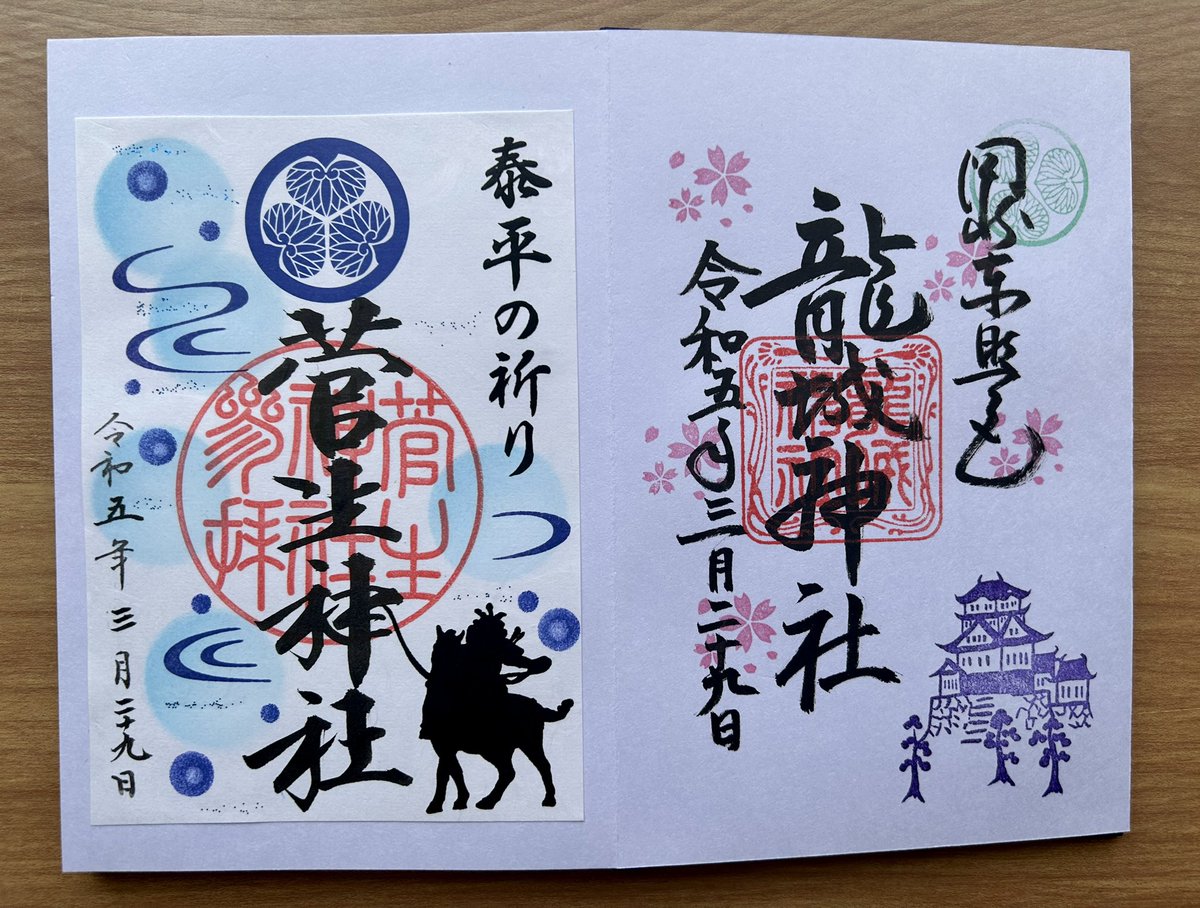 岡崎東照宮
龍城神社
龍城
神社
令和五年三月二十九日
泰平の祈り
菅生神社
菅生
神社
參拜
令和五年三月二十九日